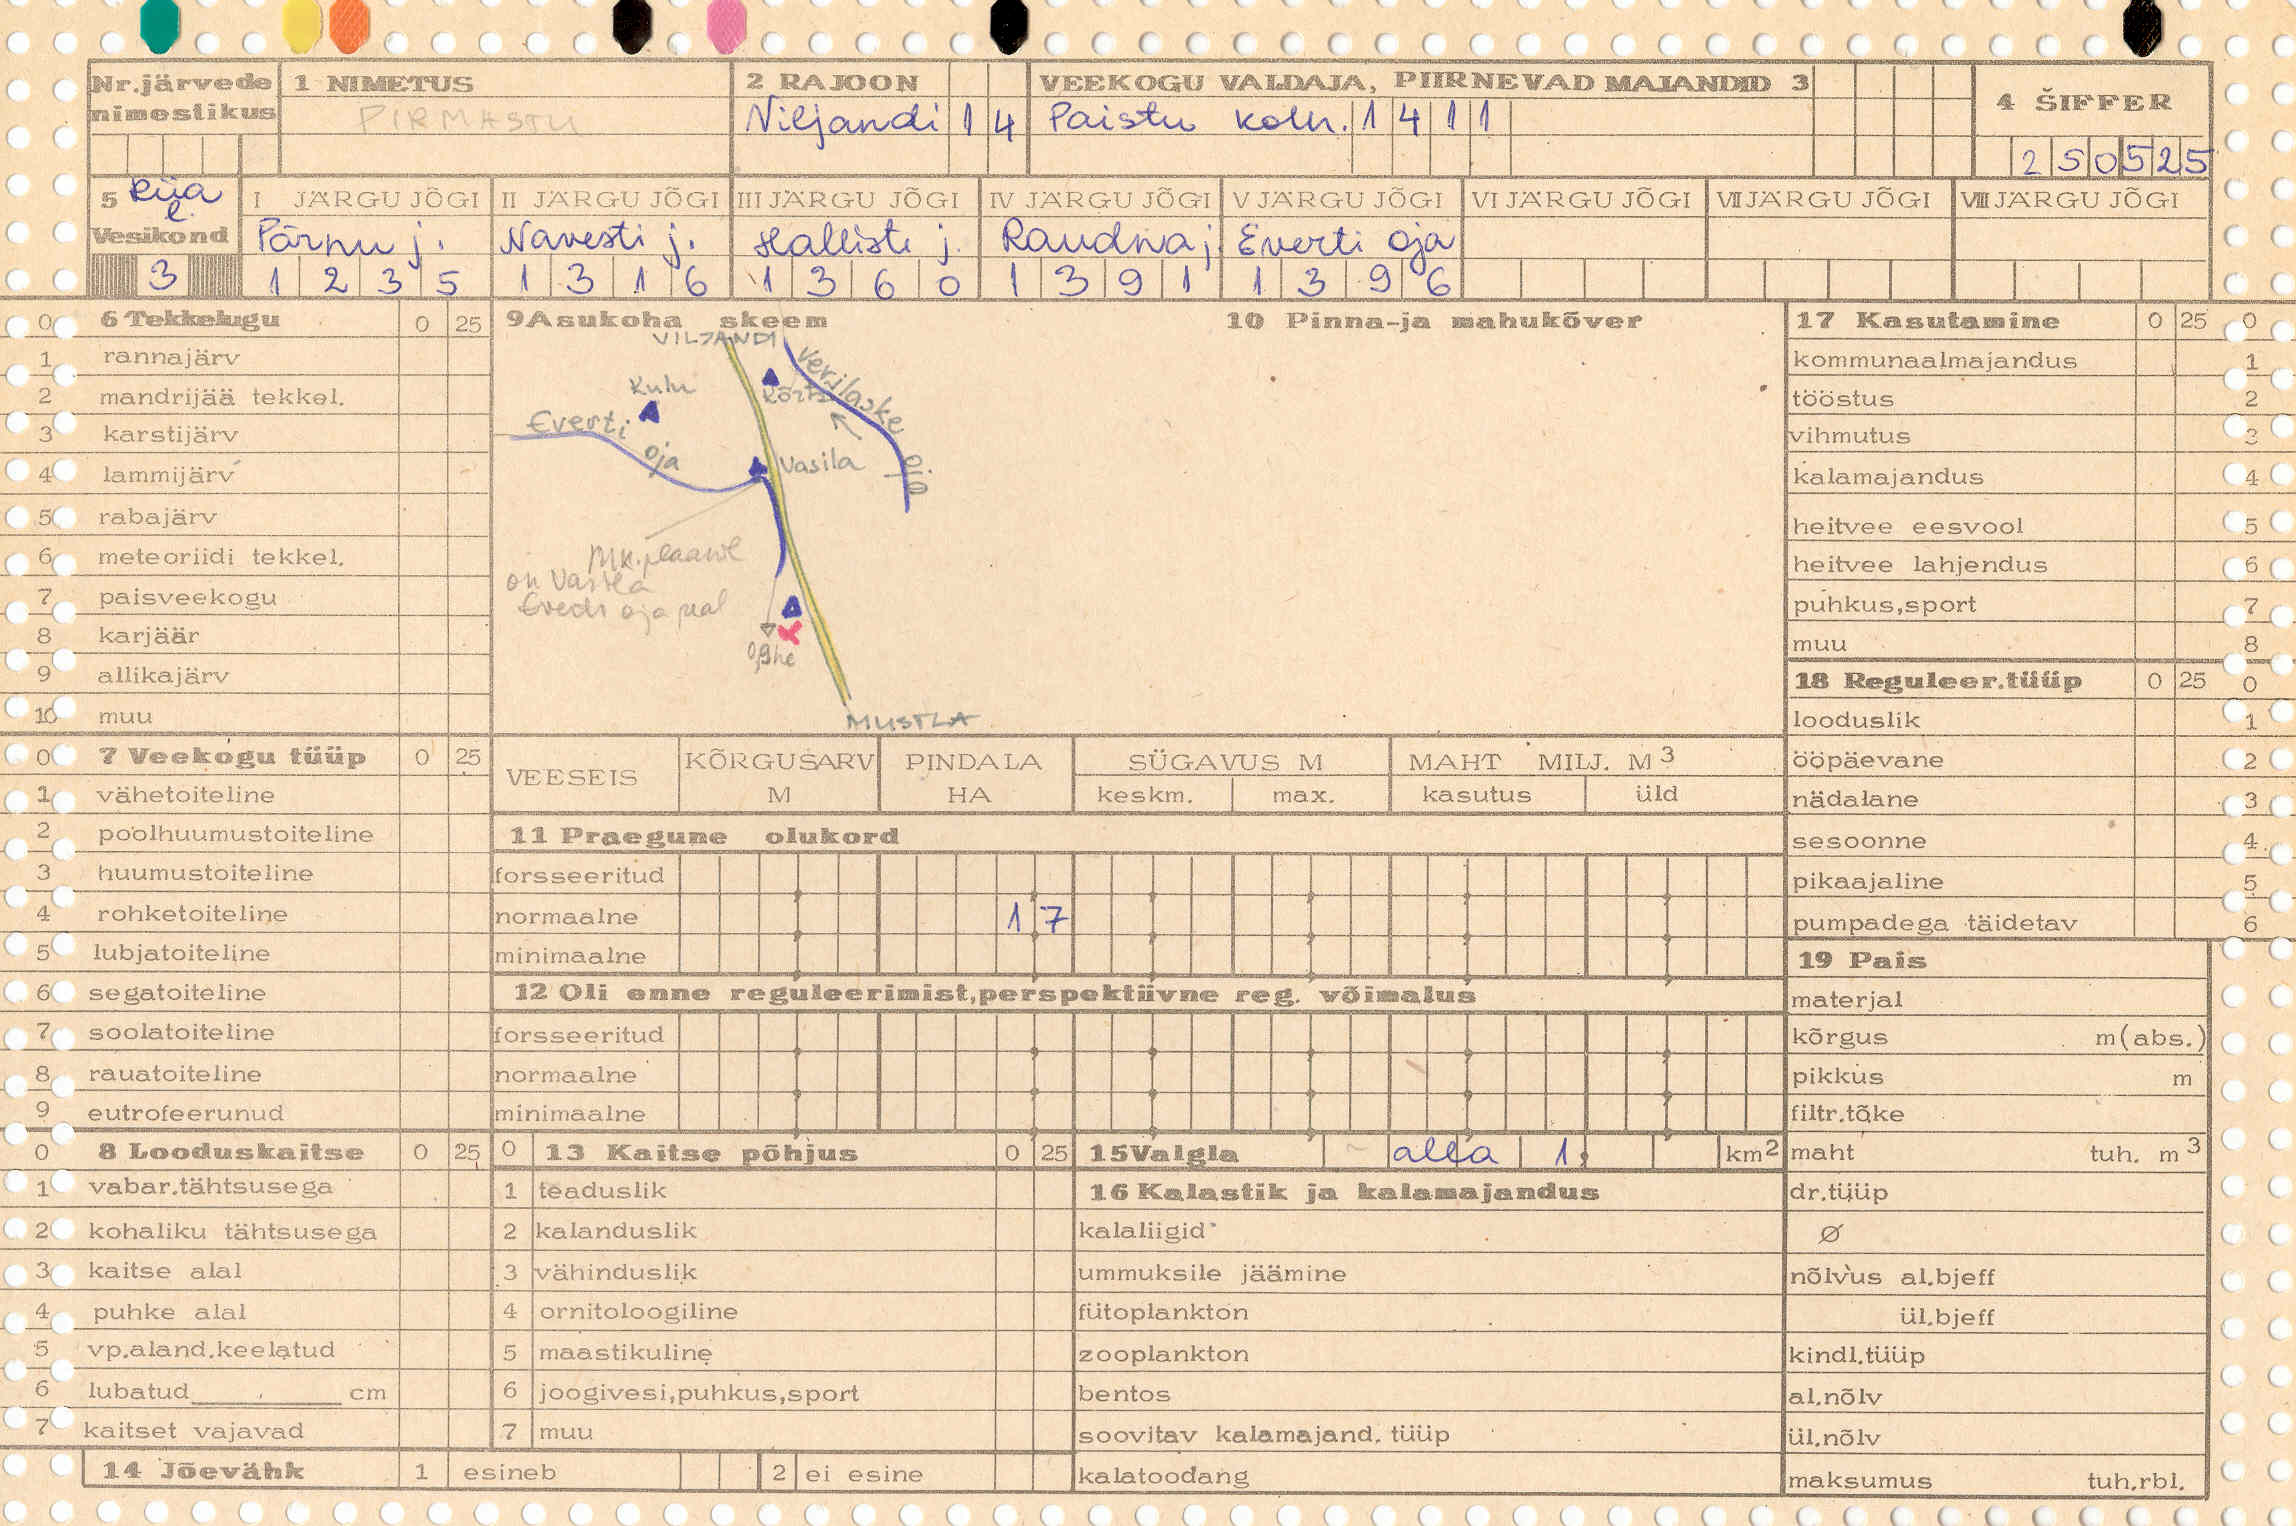 Nr.järvede nimestikus
1 NIMETUS
PIRMASTU
2 RAJOON
Viljandi 1 4
VEEKOGU VALDAJA, PIIRNEVAD MAJANDID 3
Paistu kolh. 1 4 1 1
4 ŠIFFER
2 5 0 5 2 5
5 Riia l. Vesikond
3
I JÄRGU JÕGI
Pärnu j.
1 2 3 5
II JÄRGU JÕGI
Navesti j.
1 3 1 6
III JÄRGU JÕGI
Halliste j.
1 3 6 0
IV JÄRGU JÕGI
Raudna j
1 3 9 1
V JÄRGU JÕGI
Everti oja
1 3 9 6
VI JÄRGU JÕGI
VII JÄRGU JÕGI
VIII JÄRGU JÕGI
0 6 Tekkelugu 0 25
1 rannajärv
2 mandrijää tekkel.
3 karstijärv
4 lammijärv
5 rabajärv
6 meteoriidi tekkel.
7 paisveekogu
8 karjäär
9 allikajärv
10 muu
0 7 Veekogu tüüp 0 25
1 vähetoiteline
2 poolhuumustoiteline
3 huumustoiteline
4 rohketoiteline
5 lubjatoiteline
6 segatoiteline
7 soolatoiteline
8 rauatoiteline
9 eutrofeerunud
0 8 Looduskaitse 0 25
1 vabar.tähtsusega
2 kohaliku tähtsusega
3 kaitse alal
4 puhke alal
5 vp.aland.keelatud
6 lubatud cm
7 kaitset vajavad
14 Jõevähk 1 esineb 2 ei esine
9 Asukoha skeem
VILJANDI
Kulu
Kõrts
Verilaske
oja
Everti
oja
Vasila
MK. plaanil
on Vasila
Everti oja peal
0,9 he
MUSTLA
10 Pinna-ja mahukõver
VEESEIS
KÕRGUSARV M
PINDALA HA
SÜGAVUS M
keskm. max.
MAHT MILJ. M3
kasutus üld
11 Praegune olukord
forsseeritud
normaalne 1 7
minimaalne
12 Oli enne reguleerimist,perspektiivne reg. võimalus
forsseeritud
normaalne
minimaalne
0 13 Kaitse põhjus 0 25
1 teaduslik
2 kalanduslik
3 vähinduslik
4 ornitoloogiline
5 maastikuline
6 joogivesi,puhkus,sport
7 muu
15 Valgla alla 1, km2
16 Kalastik ja kalamajandus
kalaliigid
ummuksile jäämine
fütoplankton
zooplankton
bentos
soovitav kalamajand. tüüp
kalatoodang
17 Kasutamine 0 25 0
kommunaalmajandus 1
tööstus 2
vihmutus 3
kalamajandus 4
heitvee eesvool 5
heitvee lahjendus 6
puhkus,sport 7
muu 8
18 Reguleer.tüüp 0 25 0
looduslik 1
ööpäevane 2
nädalane 3
sesoonne 4
pikaajaline 5
pumpadega täidetav 6
19 Pais
materjal
kõrgus m(abs.)
pikkus m
filtr.tõke
maht tuh. m3
dr.tüüp
Ø
nõlvus al.bjeff
ül.bjeff
kindl.tüüp
al.nõlv
ül.nõlv
maksumus tuh.rbl.